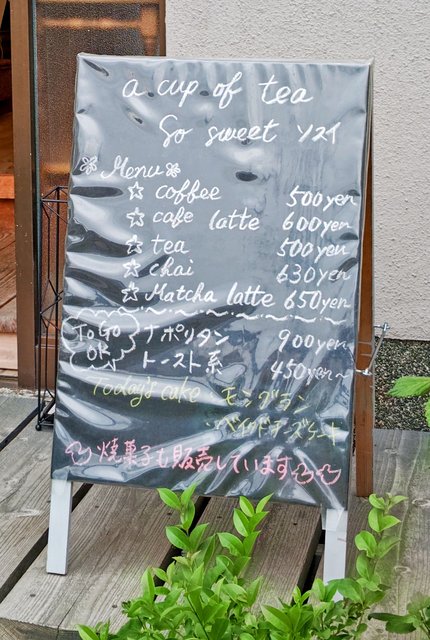 a cup of tea
So sweet ソスイ
Menu
coffee 500yen
cafe latte 600yen
tea 500yen
chai 630yen
Matcha latte 650yen
To Go OK
ナポリタン 900yen
トースト系 450yen~
Today's cake モンブラン
・ベイクドチーズケーキ
焼菓子も販売しています